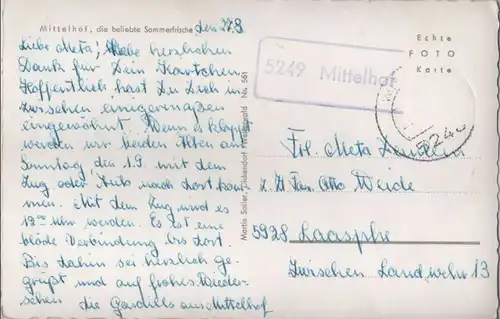 Mittelhof, die beliebte Sommerfrische
den 27.8
Liebe Meta! Habe herzlichen
Dank für Dein Kärtchen.
Hoffentlich hast Du Dich in-
zwischen einigermaßen
eingewöhnt. Wenn es klappt
werden wir beiden Alten am
Sonntag, den 1.9 mit dem
Zug oder Auto nach dort kom-
men. Mit dem Zug wird es
12 Uhr werden. Es ist eine
blöde Verbindung bis dort.
Bis dahin sei herzlich ge-
grüßt und auf frohes Wieder-
sehen die aus Mittelhof
Martin Sailer, Dickendorf / Westerwald Nr. 561
5249 Mittelhof
Echte
FOTO
Karte
524
Frl. Meta
z. Zt Fam. Otto Weide
5928 Laasphe
Zwischen Landwehr 13